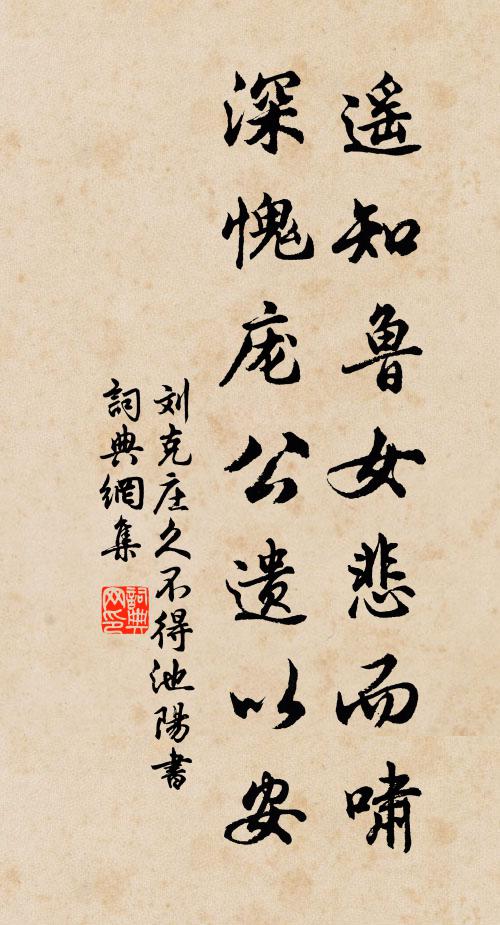 遥知鲁女悲而啸
深愧庞公遗以安
刘克庄久不得池陽書
詞典網集
詞典网印